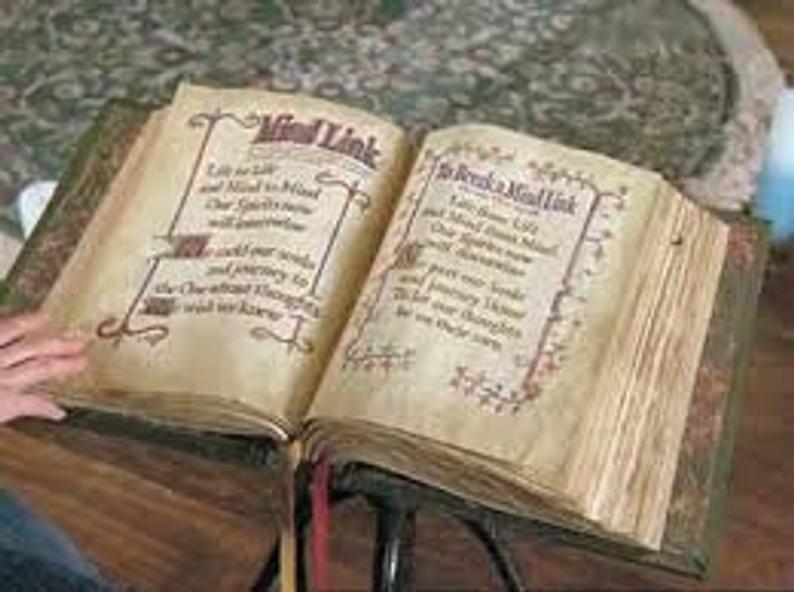 Mind Link
Life to Life
and Mind to Mind
Our Spirits now
will intertwine
We meld our souls
and journey to
the One whose Thoughts
we wish we knew
To Break a Mind Link
Life from Life
and Mind from Mind
Our Spirits now
will
part our souls
and journey Home
To let our thoughts
be our own